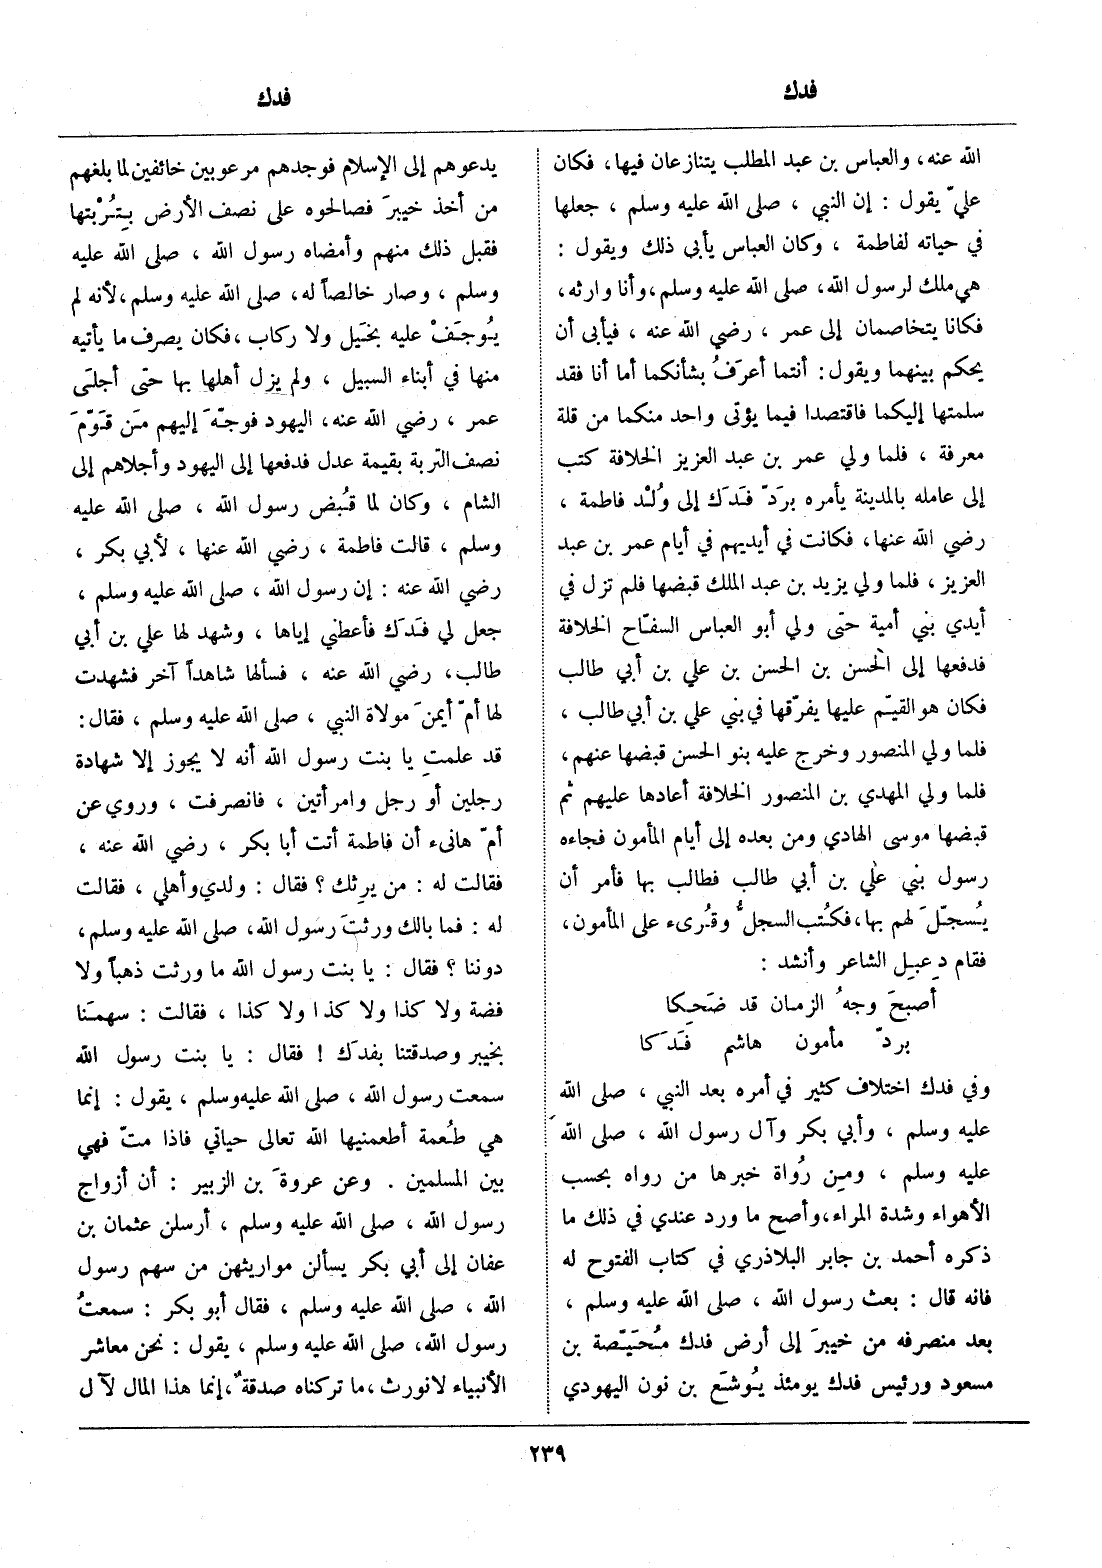 فدك
فدك
الله عنه، والعباس بن عبد المطلب يتنازعان فيها، فكان
عليّ يقول : إن النبي ، صلى الله عليه وسلم ، جعلها
في حياته لفاطمة ، وكان العباس يأبى ذلك ويقول :
هي ملك لرسول الله، صلى الله عليه وسلم، وأنا وارثه،
فكانا يتخاصمان إلى عمر ، رضي الله عنه ، فيأبى أن
يحكم بينهما ويقول : أنتما أعرَفُ بشأنكما أما أنا فقد
سلمتها إليكما فاقتصدا فيما يؤتى واحد منكما من قلة
معرفة ، فلما ولي عمر بن عبد العزيز الخلافة كتب
إلى عامله بالمدينة يأمره بردّ فَدَك إلى وُلْد فاطمة ،
رضي الله عنها، فكانت في أيديهم في أيام عمر بن عبد
العزيز ، فلما ولي يزيد بن عبد الملك قبضها فلم تزل في
أيدي بني أمية حتى ولي أبو العباس السفّاح الخلافة
فدفعها إلى الحسن بن الحسن بن علي بن أبي طالب
فكان هو القيّم عليها يفرّقها في بني علي بن أبي طالب ،
فلما ولي المنصور وخرج عليه بنو الحسن قبضها عنهم،
فلما ولي المهدي بن المنصور الخلافة أعادها عليهم ثم
قبضها موسى الهادي ومن بعده إلى أيام المأمون فجاءه
رسول بني علي بن أبي طالب فطالب بها فأمر أن
يُسجّلَ لهم بها، فكُتب السجلُّ وقُرىء على المأمون،
فقام دِعبِل الشاعر وأنشد :
أصبحَ وجهُ الزمان قد ضَحِكا
بردّ مأمون هاشم فَدَكا
وفي فدك اختلاف كثير في أمره بعد النبي ، صلى الله
عليه وسلم ، وأبي بكر وآل رسول الله ، صلى الله
عليه وسلم ، ومِن رُواة خبرها من رواه بحسب
الأهواء وشدة المراء، وأصح ما ورد عندي في ذلك ما
ذكره أحمد بن جابر البلاذري في كتاب الفتوح له
فانه قال : بعث رسول الله ، صلى الله عليه وسلم ،
بعد منصرفه من خيبرَ إلى أرض فدك مُحَيّصة بن
مسعود ورئيس فدك يومئذ يُوشَع بن نون اليهودي
يدعوهم إلى الإسلام فوجدهم مرعوبين خائفين لما بلغهم
من أخذ خيبرَ فصالحوه على نصف الأرض بِتُرْبتها
فقبل ذلك منهم وأمضاه رسول الله ، صلى الله عليه
وسلم ، وصار خالصاً له، صلى الله عليه وسلم، لأنه لم
يُوجَفْ عليه بخَيل ولا ركاب ، فكان يصرف ما يأتيه
منها في أبناء السبيل ، ولم يزل أهلها بها حتى أجلَى
عمر ، رضي الله عنه، اليهود فوجّهَ إليهم مَن قَوّمَ
نصف التربة بقيمة عدل فدفعها إلى اليهود وأجلاهم إلى
الشام ، وكان لما قُبض رسول الله ، صلى الله عليه
وسلم ، قالت فاطمة ، رضي الله عنها ، لأبي بكر ،
رضي الله عنه : إن رسول الله ، صلى الله عليه وسلم ،
جعل لي فَدَك فأعطني إياها ، وشهد لها علي بن أبي
طالب، رضي الله عنه ، فسألها شاهداً آخر فشهدت
لها أمّ أيمنَ مولاة النبي ، صلى الله عليه وسلم ، فقال:
قد علمتِ يا بنت رسول الله أنه لا يجوز إلا شهادة
رجلين أو رجل وامرأتين ، فانصرفت ، وروي عن
أمّ هانىء أن فاطمة أتت أبا بكر ، رضي الله عنه ،
فقالت له : من يرثك ؟ فقال : ولدي وأهلي ، فقالت
له : فما بالك ورثتَ رسول الله، صلى الله عليه وسلم،
دوننا ؟ فقال : يا بنت رسول الله ما ورثت ذهباً ولا
فضة ولا كذا ولا كذا ولا كذا ، فقالت : سهمَنا
بخيبر وصدقتنا بفدَك ! فقال : يا بنت رسول الله
سمعت رسول الله ، صلى الله عليه وسلم ، يقول : إنما
هي طُعمة أطعمنيها الله تعالى حياتي فاذا متّ فهي
بين المسلمين . وعن عروةَ بن الزبير : أن أزواج
رسول الله ، صلى الله عليه وسلم ، أرسلن عثمان بن
عفان إلى أبي بكر يسألن مواريثهن من سهم رسول
الله ، صلى الله عليه وسلم ، فقال أبو بكر : سمعتُ
رسول الله، صلى الله عليه وسلم ، يقول : نحن معاشر
الأنبياء لا نورث ، ما تركناه صدقةٌ، إنما هذا المال لآل
٢٣٩